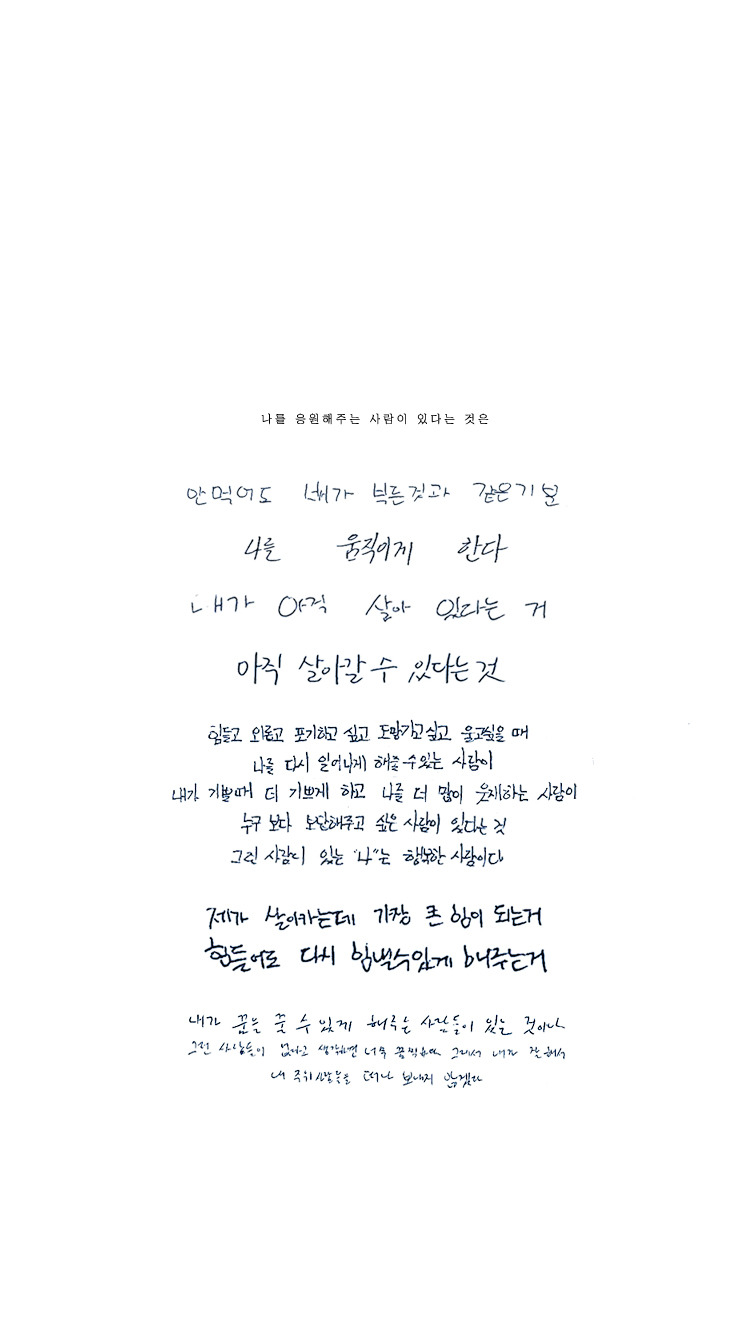 나를 응원해주는 사람이 있다는 것은
안먹어도 배가 부른것과 같은기분
나를 움직이게 한다
내가 아직 살아 있다는 거
아직 살아갈 수 있다는 것
힘들고 외롭고 포기하고 싶고 도망가고싶고 울고싶을 때
나를 다시 일어나게 해줄수있는 사람이
내가 기쁠때 더 기쁘게 하고 나를 더 많이 웃게하는 사람이
누구 보다 보답해주고 싶은 사람이 있다는 것
그런 사람이 있는 "나"는 행복한 사람이다
제가 살아가는데 가장 큰 힘이 되는거
힘들어도 다시 힘낼수있게 해주는거
내가 꿈을 꿀 수 있게 해주는 사람들이 있는 것이다
그런 사람들이 없다고 생각하면 너무 끔찍하다 그래서 내가 잘해서
내 주위사람들을 떠나 보내지 않겠다